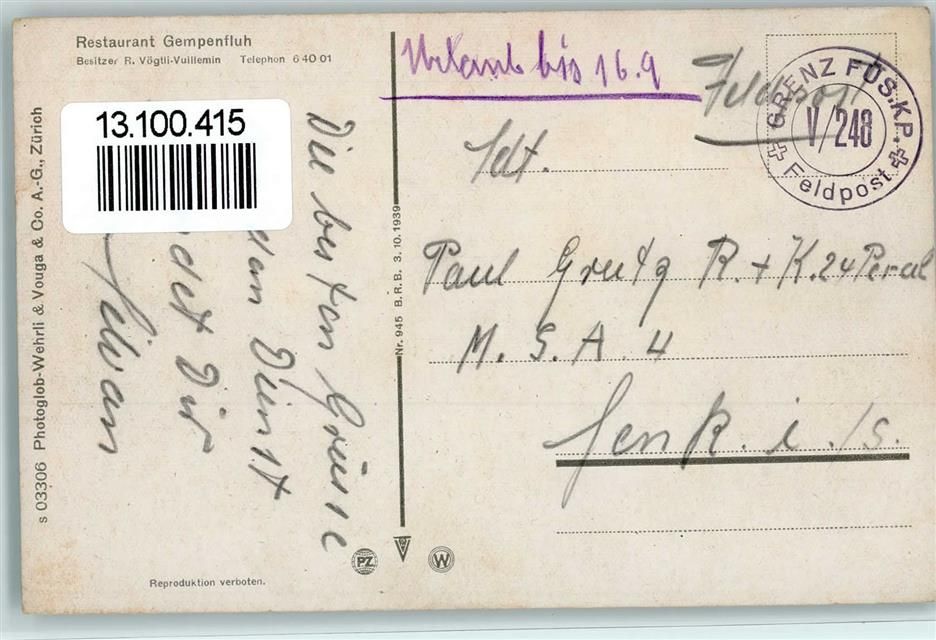 Restaurant Gempenfluh
Besitzer R. Vögtli-Vuillemin Telephon 6 40 01
13.100.415
Urlaub bis 16.9
Feldpost
GRENZ FÜS.KP.
V/248
Feldpost
Sdt.
Paul Greutz R. + K. 24
M. S. A 4
Lenk. i./S.
Die besten Grüsse
dem Dünst
det Dir
s 03306 Photoglob-Wehrli & Vouga & Co. A.-G., Zürich
Nr. 945 B. R. B. 3. 10. 1939
PZ
V
W
Reproduktion verboten.